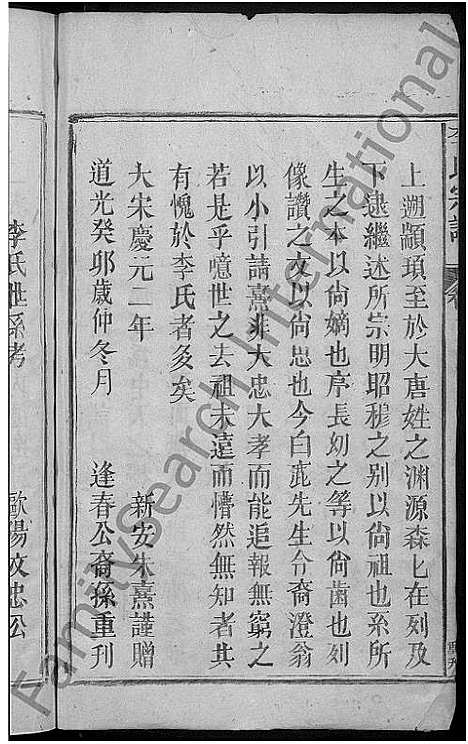 李氏宗譜
卷
上遡顓頊至於大唐姓之淵源森匕在列及
下逮繼述所宗明昭穆之別以尙祖也系所
生之本以尙嫡也序長幼之等以尙齒也列
像讚之文以尙思也今白鹿先生令裔澄翁
以小引請熹非大忠大孝而能追報無窮之
若是乎噫世之去祖未遠而懵然無知者其
有愧於李氏者多矣
大宋慶元二年 新安朱熹謹贈
道光癸卯歲仲冬月 逢春公裔孫重刊
李氏世系考 歐陽文忠公
FamilySearch International